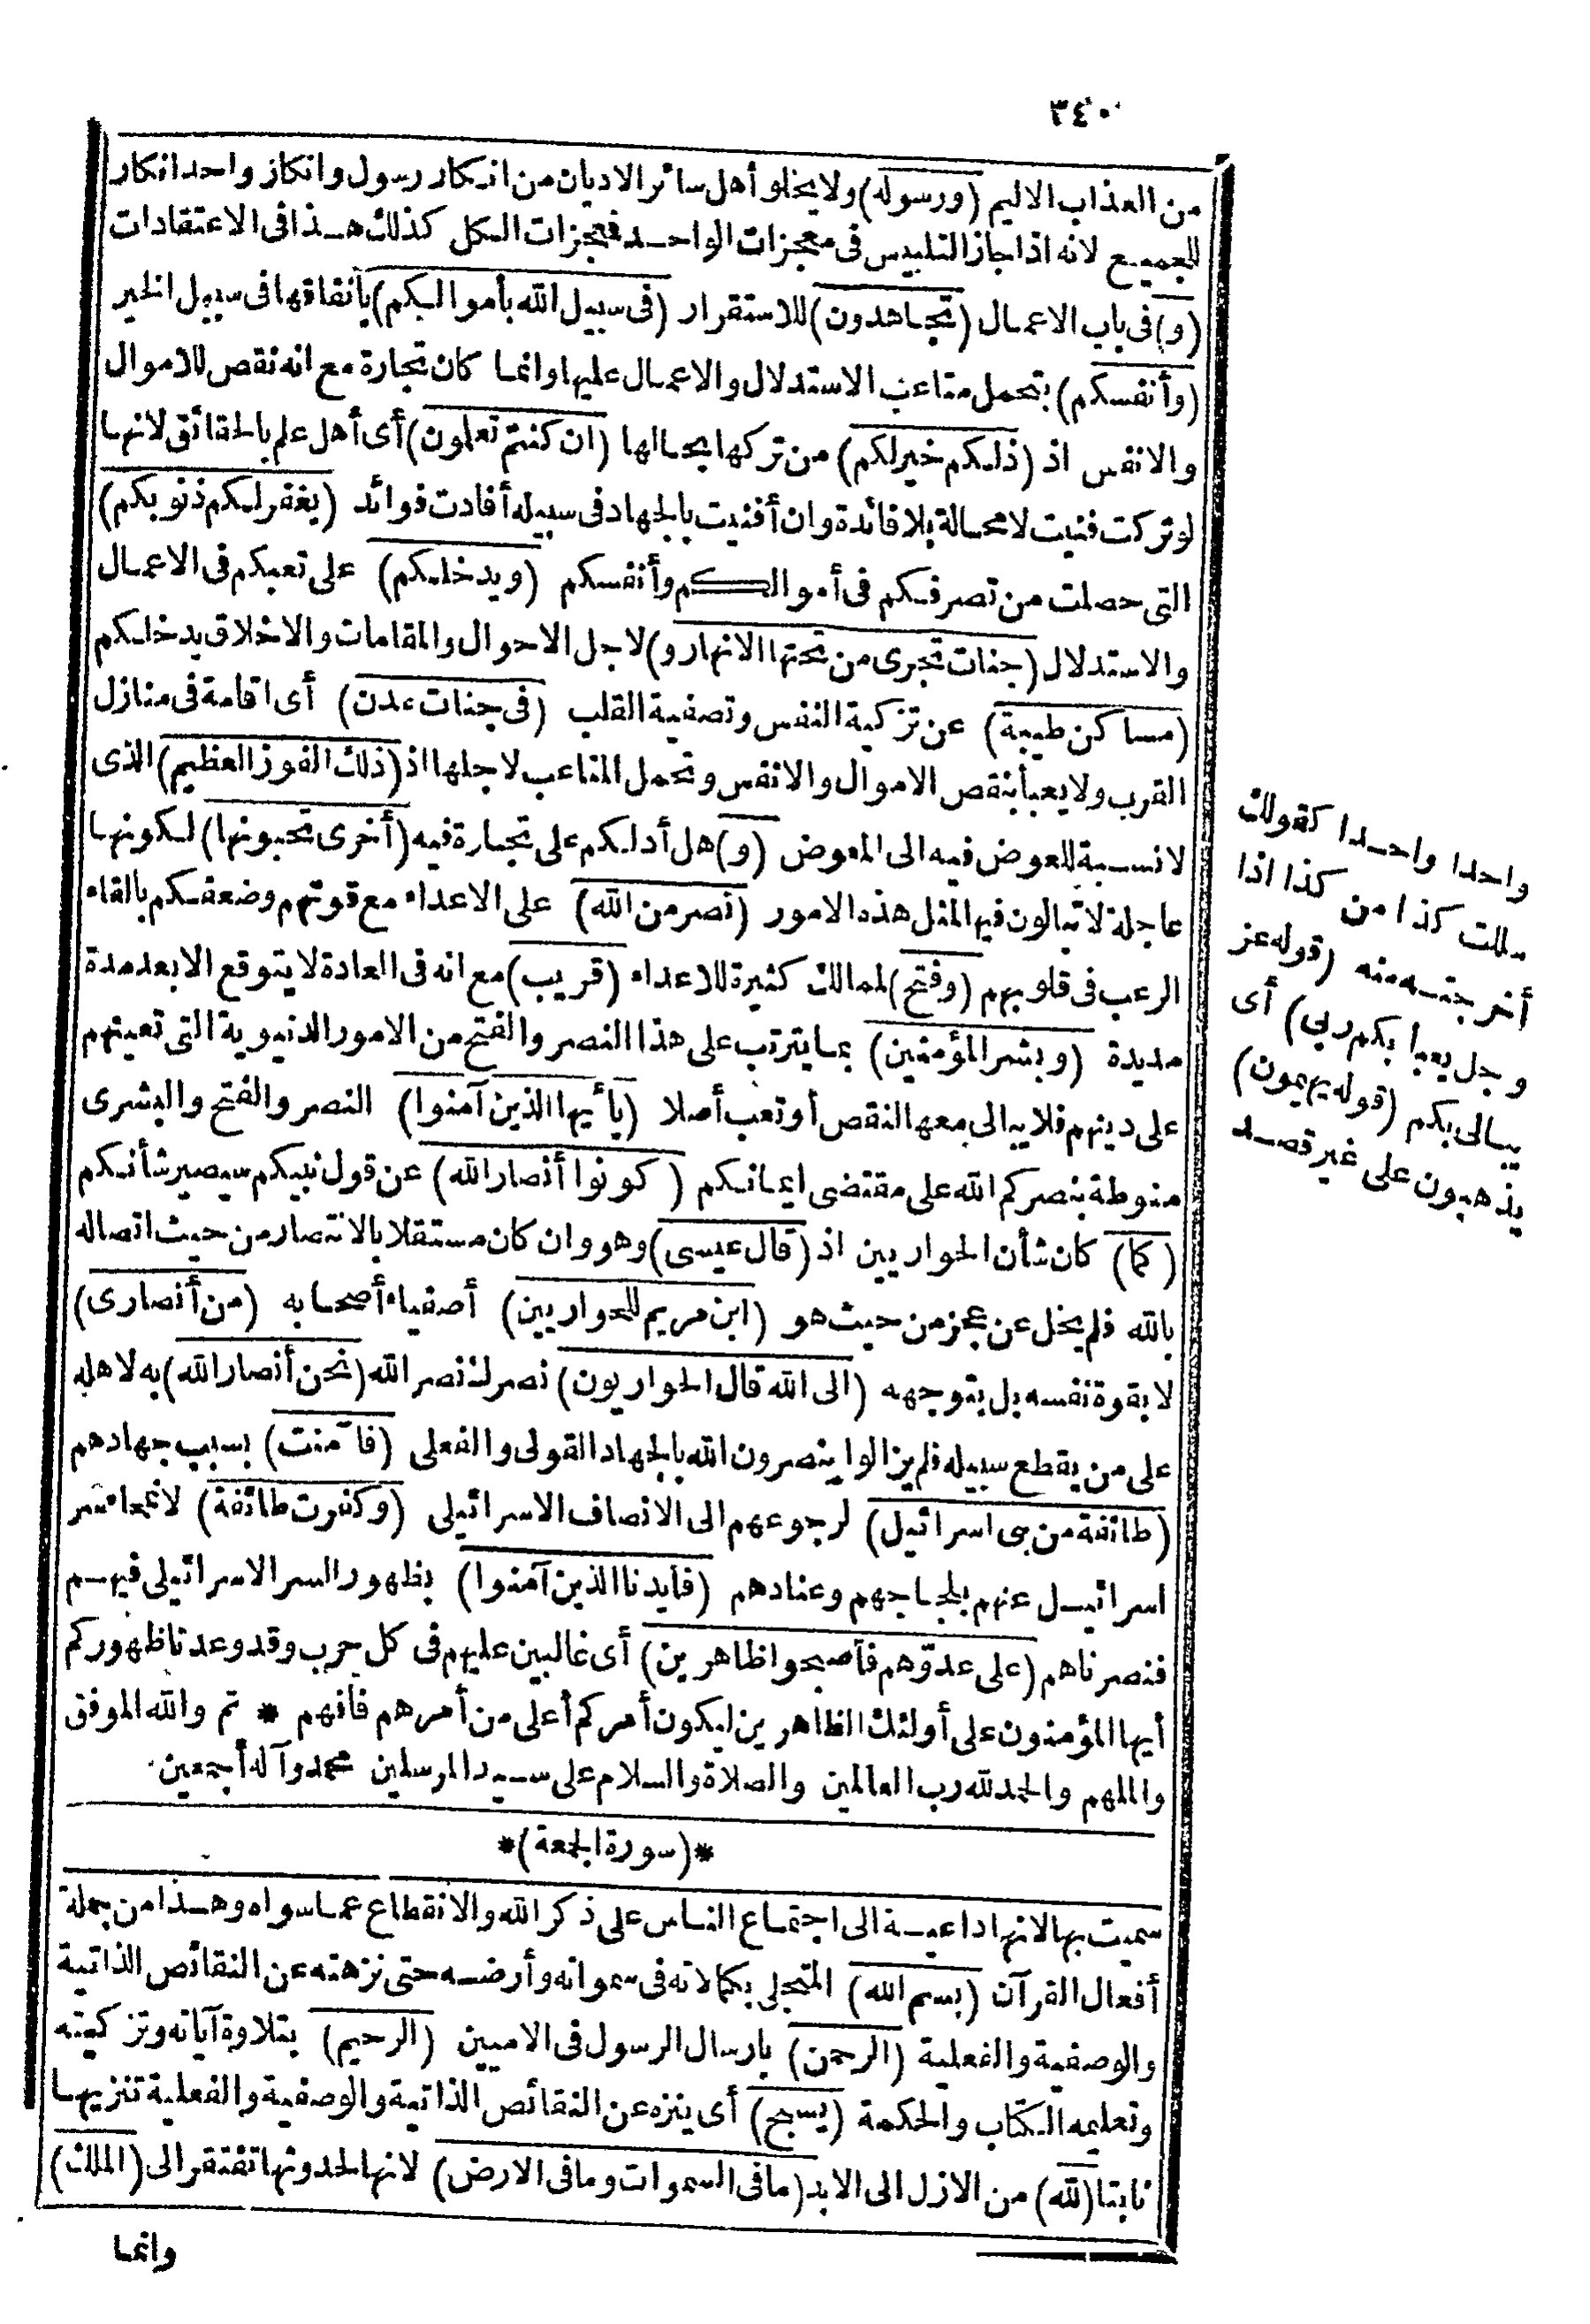 ٣٤٠
من العذاب الاليم (ورسوله) ولا يخلو أهل سائر الاديان من انكار رسول وانكار واحد انكار
للجميع لانه اذا جاز التلبيس فى معجزات الواحد فمعجزات الكل كذلك هذا فى الاعتقادات
(و) فى باب الاعمال (تجاهدون) للاستقرار (فى سبيل الله بأموالكم) بانفاقها فى سبيل الخير
(وأنفسكم) بتحمل متاعب الاستدلال والاعمال عليها وانما كان تجارة مع انه نقص للاموال
والانفس اذ (ذلكم خير لكم) من تركها بحالها (ان كنتم تعلمون) أى أهل علم بالحقائق لانها
لو تركت فنيت لا محالة بلا فائدة وان أفنيت بالجهاد فى سبيله أفادت فوائد (يغفر لكم ذنوبكم)
التى حصلت من تصرفكم فى أموالكم وأنفسكم (ويدخلكم) على تعبكم فى الاعمال
والاستدلال (جنات تجرى من تحتها الانهار و) لاجل الاحوال والمقامات والاخلاق يدخلكم
(مساكن طيبة) عن تزكية النفس وتصفية القلب (فى جنات عدن) أى اقامة فى منازل
القرب ولا يعبأ بنقص الاموال والانفس وتحمل المتاعب لاجلها اذ (ذلك الفوز العظيم) الذى
لا نسبة للعوض فيه الى المعوض (و) هل أدلكم على تجارة فيه (أخرى تحبونها) لكونها
عاجلة لا تبالون فيها لمثل هذه الامور (نصر من الله) على الاعداء مع قوتهم وضعفكم بالقاء
الرعب فى قلوبهم (وفتح) لممالك كثيرة للاعداء (قريب) مع انه فى العادة لا يتوقع الا بعد مدة
مديدة (وبشر المؤمنين) بما يترتب على هذا النصر والفتح من الامور الدنيوية التى تعينهم
على دينهم فلا يبالى معها النقص أو تعب أصلا (يا أيها الذين آمنوا) النصر والفتح والبشرى
منوطة بنصركم الله على مقتضى ايمانكم (كونوا أنصار الله) عن قول نبيكم سيصير شأنكم
(كما) كان شأن الحواريين اذ (قال عيسى) وهو وان كان مستقلا بالانتصار من حيث اتصاله
بالله فلم يخل عن عجز من حيث هو (ابن مريم للحواريين) أصفياء أصحابه (من أنصارى)
لا بقوة نفسه بل بتوجهه (الى الله قال الحواريون) نصرك نصر الله (نحن أنصار الله) به لاهله
على من يقطع سبيله فلم يزالوا ينصرون الله بالجهاد القولى والفعلى (فآمنت) بسبب جهادهم
(طائفة من بنى اسرائيل) لرجوعهم الى الانصاف الاسرائيلى (وكفرت طائفة) لانمحاء سر
اسرائيل عنهم بلجاجهم وعنادهم (فأيدنا الذين آمنوا) بظهور السر الاسرائيلى فيهم
فنصرناهم (على عدوّهم فأصبحوا ظاهرين) أى غالبين عليهم فى كل حرب وقد وعدنا ظهوركم
أيها المؤمنون على أولئك الظاهرين ليكون أمركم أعلى من أمرهم فافهم * تم والله الموفق
والملهم والحمد لله رب العالمين والصلاة والسلام على سيد المرسلين محمد وآله أجمعين
*(سورة الجمعة)*
سميت بها لانها داعية الى اجتماع الناس على ذكر الله والانقطاع عما سواه وهذا من جملة
أفعال القرآن (بسم الله) المتجلى بكمالاته فى سمواته وأرضه حتى نزهته عن النقائص الذاتية
والوصفية والفعلية (الرحمن) بارسال الرسول فى الاميين (الرحيم) بتلاوة آياته وتزكيته
وتعليمه الكتاب والحكمة (يسبح) أى ينزه عن النقائص الذاتية والوصفية والفعلية تنزيها
ثابتا (لله) من الازل الى الابد (ما فى السموات وما فى الارض) لانها لحدوثها تفتقر الى (الملك)
وانما
واحدا واحدا كقولك
سللت كذا من كذا اذا
أخرجته منه (قوله عز
وجل يعبأ بكم ربي) أى
يبالى بكم (قوله يهيمون)
يذهبون على غير قصد